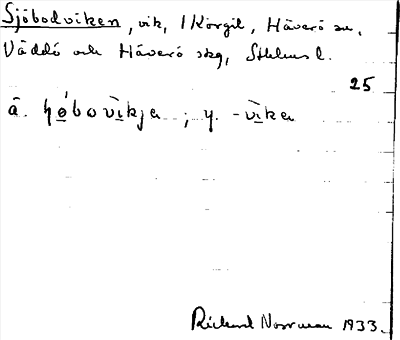 Sjöbodviken, vik, 1 Korgil, Häverö sn,
Väddö och Häverö skg, Sthlms l.
25
ä. ɧøbovìkja ; y. -vìka
Rickard Norrman 1933.